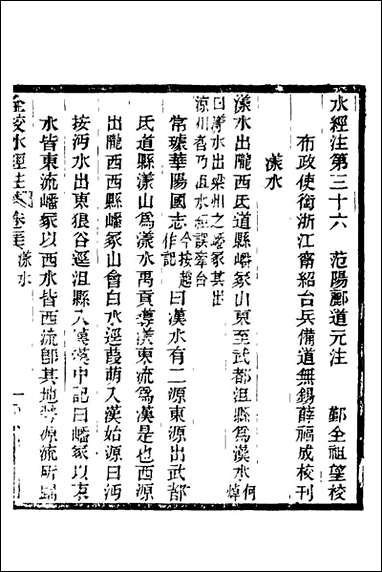 水經注第三十六　范陽酈道元注　鄞全祖望校
布政使銜浙江甯紹台兵備道無錫薛福成校刊
漾水
漾水出隴西氐道縣嶓冢山東至武都沮縣爲漢水何焯
曰漾水出梁州之嶓冢其出
涼州者乃沮水經誤牽合
常璩華陽國志今按趙作記曰漢水有二源東源出武都
氐道縣漾山爲漾水禹貢導漾東流爲漢是也西源
出隴西西縣嶓冢山會白水逕葭萌入漢始源曰沔
按沔水出東狼谷逕沮縣入漢漢中記曰嶓冢以東
水皆東流嶓冢以西水皆西流卽其地勢源流所歸
全校水經注 漾水